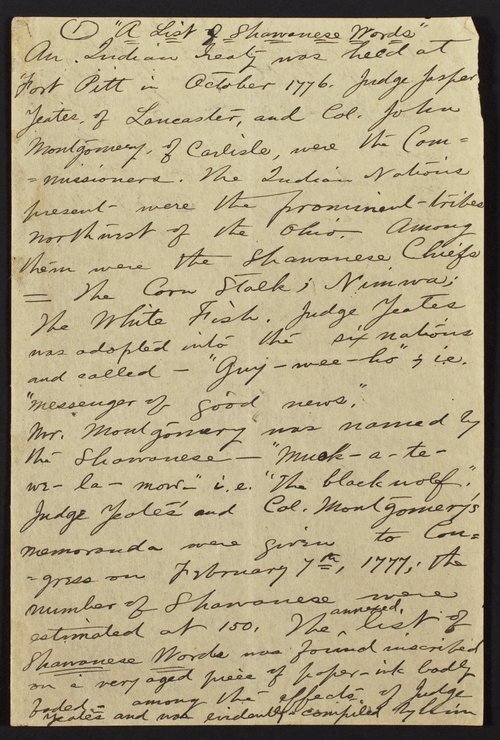 ① "A List of Shawanese Words"
An Indian Treaty was held at
Fort Pitt in October 1776. Judge Jasper
Yeates, of Lancaster, and Col. John
Montgomery, of Carlisle, were the Com=
=missioners. The Indian Nations
present were the prominent tribes
northwest of the Ohio. Among
them were the Shawanese Chiefs
= The Corn Stalk; Nimwa;
The White Fish. Judge Yeates
was adopted into the six nations
and called - "Guy-wee-ho"; i.e.
"messenger of good news."
Mr. Montgomery was named by
the Shawanese - "Muck-a-te-
we-la-mow-" i.e. "The black wolf".
Judge Yeates and Col. Montgomery's
memoranda were given to Con=
=gress on February 7th, 1777; the
number of Shawanese were
estimated at 150. The annexed list of
Shawanese Words was found inscribed
on a very aged piece of paper-ink badly
faded - among the effects of Judge
Yeates and was evidently compiled by him